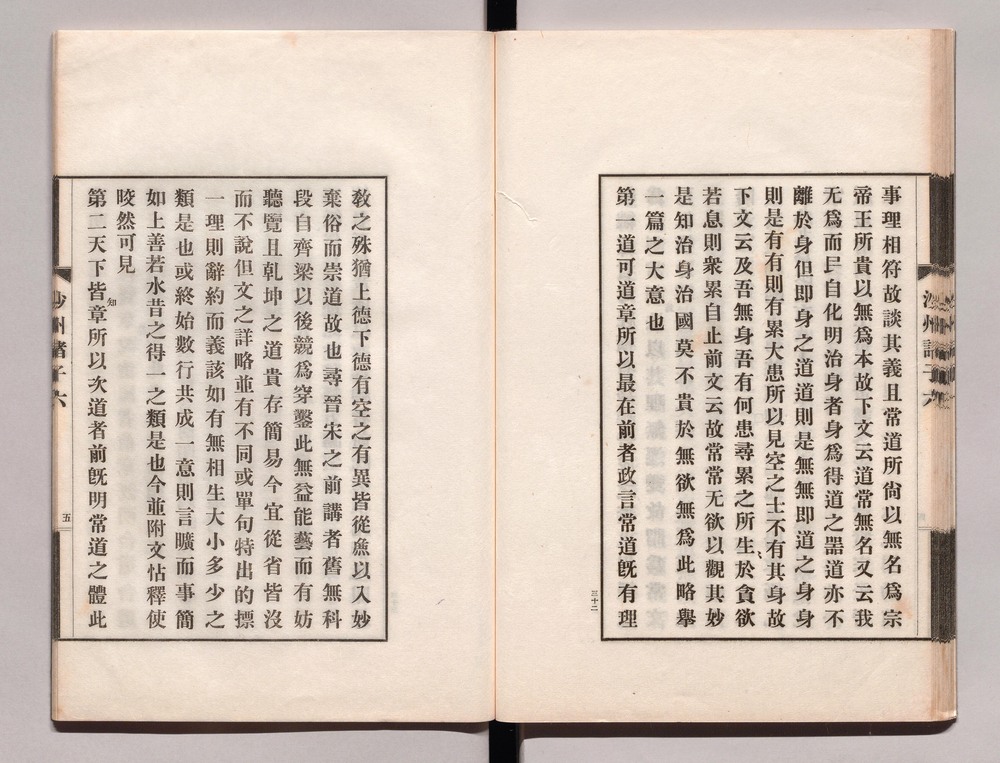 事理相符故談其義且常道所尙以無名爲宗
帝王所貴以無爲爲本故下文云道常無名又云我
无爲而民自化明治身者身爲得道之器道亦不
離於身但即身之道道則是無無即道之身身
則是有有則有累大患所以見空之士不有其身故
下文云及吾無身吾有何患尋累之所生於貪欲
若息則衆累自止前文云故常常无欲以觀其妙
是知治身治國莫不貴於無欲無爲此略舉
一篇之大意也
第一道可道章所以最在前者政言常道旣有理
三十二
教之殊猶上德下德有空之有異皆從麁以入妙
棄俗而崇道故也尋晉宋之前講者舊無科
段自齊梁以後競爲穿鑿此無益能藝而有妨
聽覽且乹坤之道貴存簡易今宜從省皆沒
而不說但文之詳略並有不同或單句特出的摽
一理則辭約而義該如有無相生大小多少之
類是也或終始數行共成一意則言曠而事簡
如上善若水昔之得一之類是也今並附文怗釋使
咬然可見
第二天下皆知章所以次道者前旣明常道之體此
沙州諸子六
五